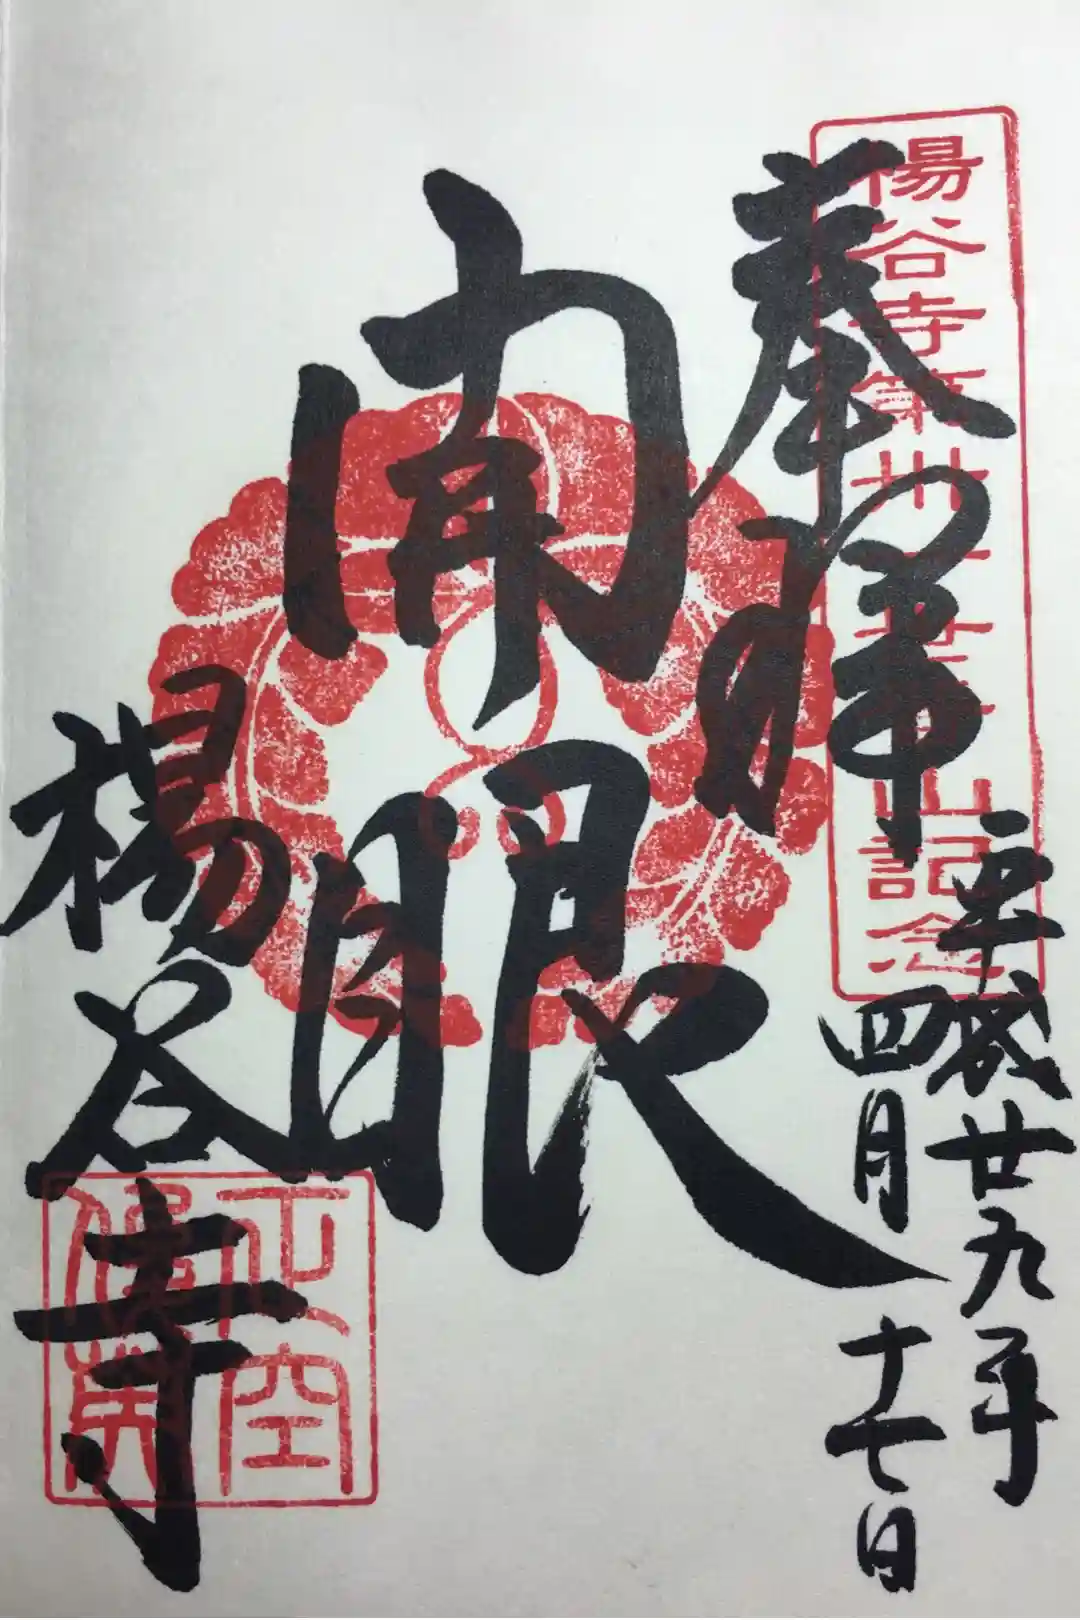 奉拝
平成廿九年
四月十七日
開眼
楊谷寺
楊谷寺第卅三世晋山記念